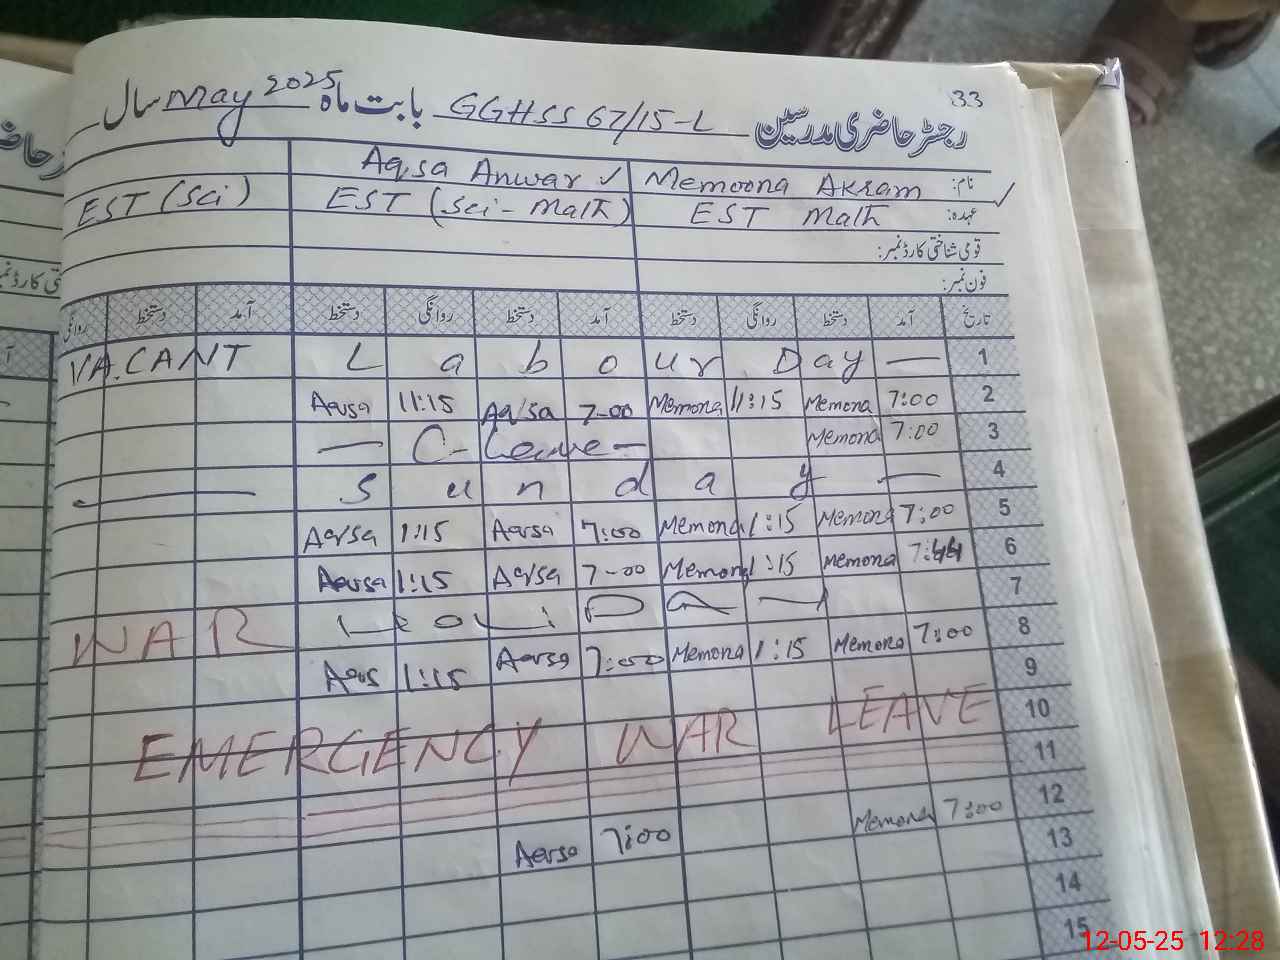 33
رجسٹر حاضری مدرسین GGHSS 67/15-L بابت ماہ May 2025 سال
نام: Memoona Akram ✓ Aqsa Anwar ✓
عہدہ: EST Math EST (Sci - Math) EST (Sci)
قومی شناختی کارڈ نمبر:
فون نمبر:
تاریخ آمد دستخط روانگی دستخط آمد دستخط روانگی دستخط آمد دستخط روانگی
1 VACANT Labour Day —
2 7:00 Memona 11:15 Memona 7-00 Aqsa 11:15 Aqsa
3 7:00 Memona — C-Leave —
4 — Sunday —
5 7:00 Memona 1:15 Memona 7:00 Aqsa 1:15 Aqsa
6 Memona 1:15 Memona 7-00 Aqsa 1:15 Aqsa
7 WAR
8 7:00 Memona 1:15 Memona 7:00 Aqsa 1:15 Aqs
9
10 EMERGENCY WAR LEAVE
11
12 7:00 Memona 7:00 Aqsa
13
14
15
12-05-25 12:28